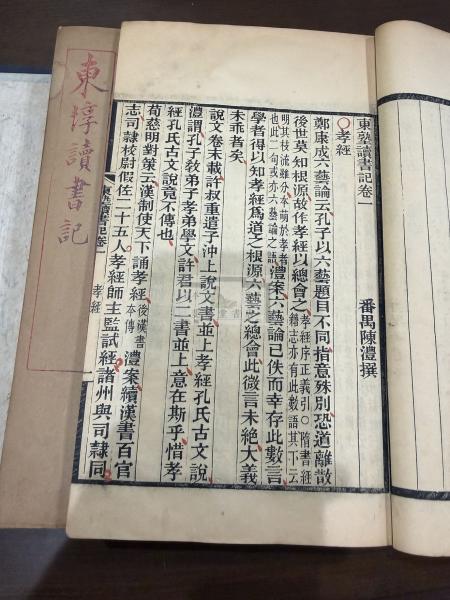 東塾讀書記卷一 番禺陳澧撰
○孝經
鄭康成六藝論云孔子以六藝題目不同指意殊別恐道離散
後世莫知根源故作孝經以總會之孝經序正義引○隋書經籍志亦有此數語其下云
明其枝流雖分本萌於孝者也此二句或亦六藝論之語澧案六藝論已佚而幸存此數言
學者得以知孝經爲道之根源六藝之總會此微言未絕大義
未乖者矣
說文卷末載許叔重遣子沖上說文書並上孝經孔氏古文說
澧謂孔子教弟子孝弟學文許君以二書並上意在斯乎惜孝
經孔氏古文說竟不傳也
荀慈明對策云漢制使天下誦孝經後漢書本傳澧案續漢書百官
志司隸校尉假佐二十五人孝經師主監試經諸州與司隸同
東塾讀書記卷一 孝經
東讀書記